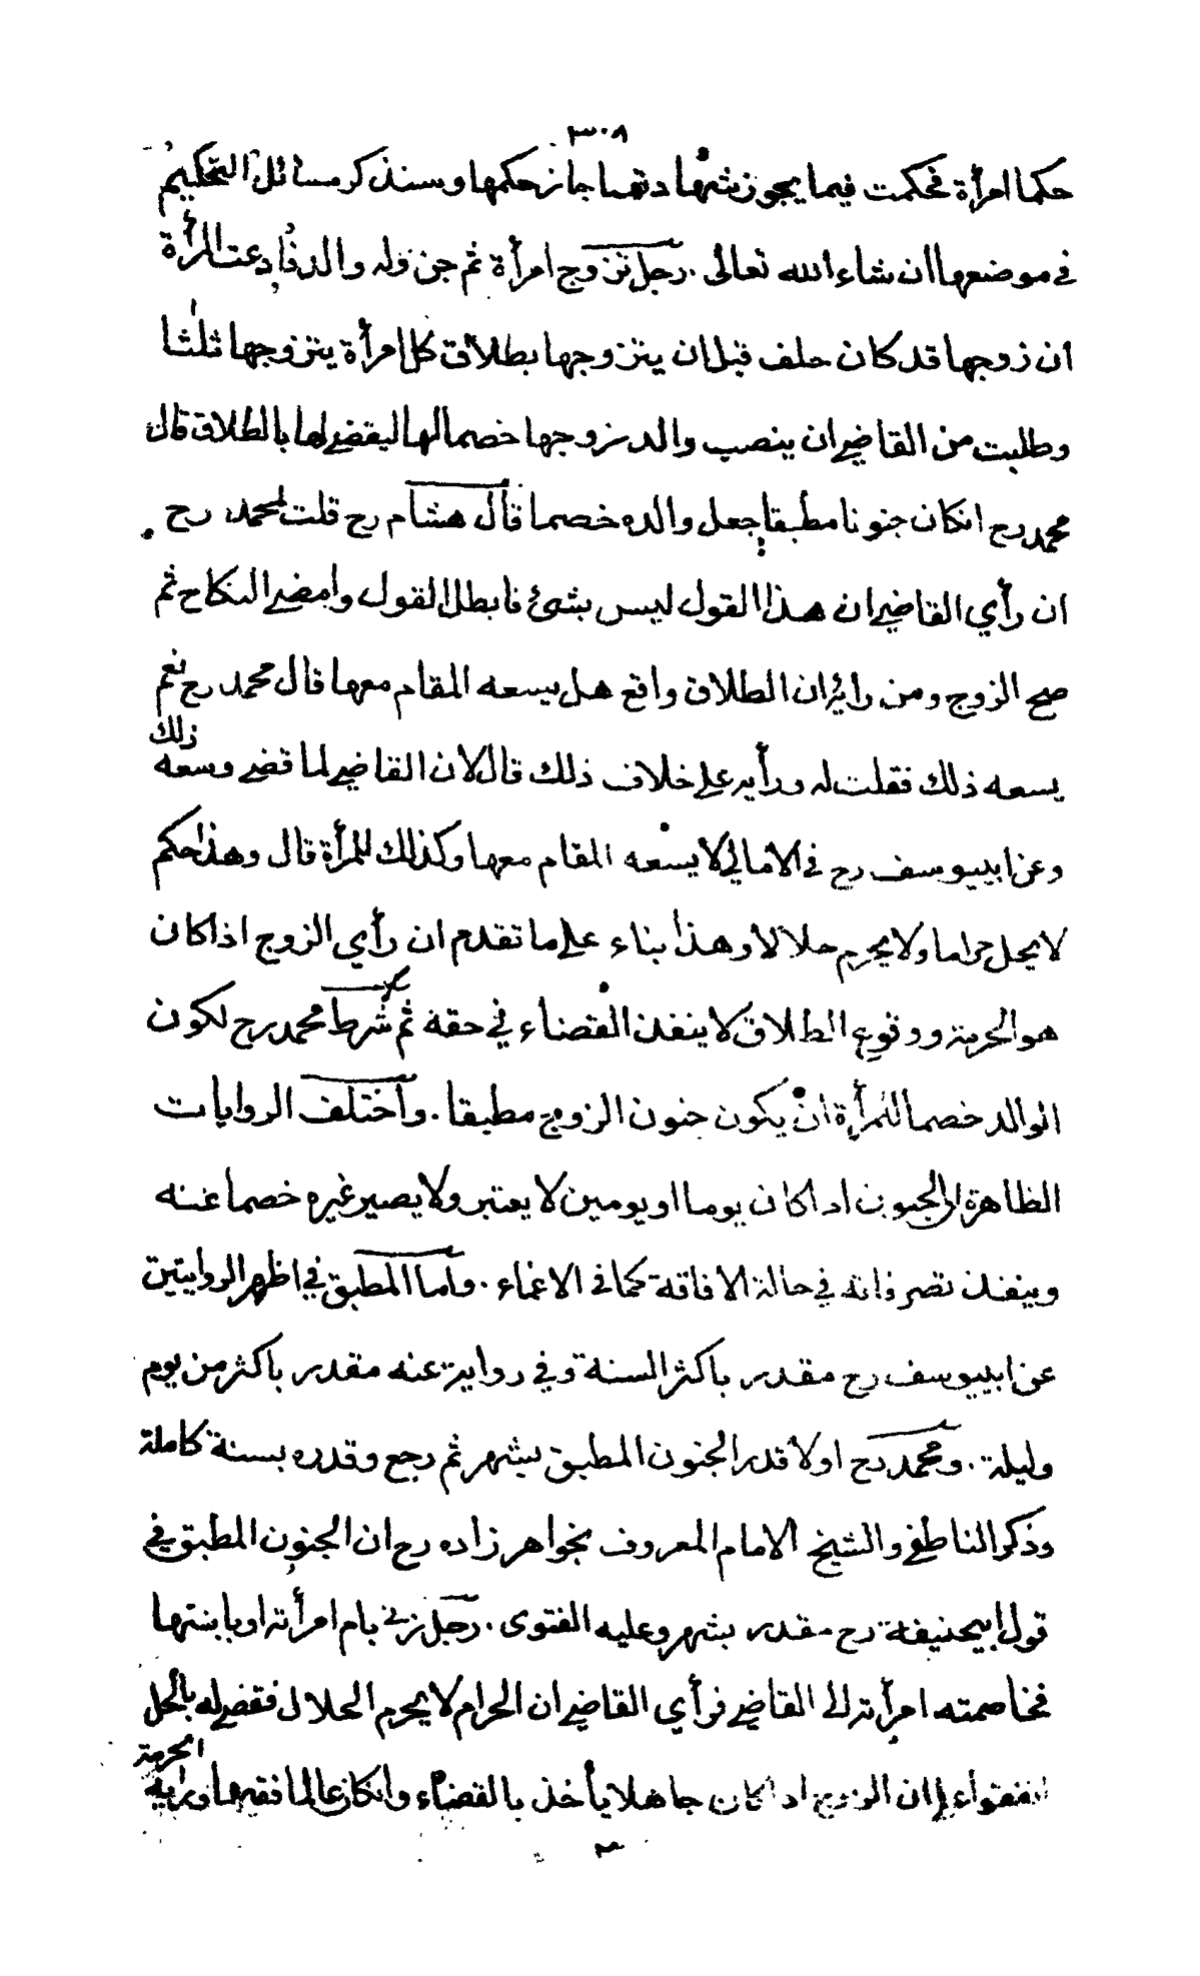 ٣٠٨
حكما امرأة فحكمت فيما يجوز شهادتها جاز حكمها وسنذكر مسائل التحكيم
في موضعها ان شاء الله تعالى . رجل تزوج امرأة ثم جن وله والد فادعت المرأة
ان زوجها قد كان حلف قبل ان يتزوجها بطلاق كل امرأة يتزوجها ثلثا
وطلبت من القاضي ان ينصب والد زوجها خصما لها ليقضي لها بالطلاق قال
محمد رح انكان جنونا مطبقا جعل والده خصما قال هشام رح قلت لمحمد رح
ان رأي القاضي ان هذا القول ليس بشئ فابطل القول وامضي النكاح ثم
صح الزوج ومن رائه ان الطلاق واقع هل يسعه المقام معها قال محمد رح نعم
يسعه ذلك فقلت له ورأيه على خلاف ذلك قال لان القاضي لما قضي وسعه ذلك
وعن ابييوسف رح في الامالي لا يسعه المقام معها وكذلك للمرأة قال وهذا حكم
لا يحل حراما ولا يحرم حلالا وهذا بناء على ما تقدم ان رأي الزوج اذا كان
هو الحرمة ووقوع الطلاق لا ينفذ القضاء في حقه ثم شرط محمد رح لكون
الوالد خصما للمرأة ان يكون جنون الزوج مطبقا . واختلف الروايات
الظاهرة ان الجنون اذا كان يوما او يومين لا يعتبر ولا يصير غيره خصما عنه
وينفذ تصرفاته في حالة الافاقة كما في الاغماء . واما المطبق في اظهر الروايتين
عن ابييوسف رح مقدر باكثر السنة وفي رواية عنه مقدر باكثر من يوم
وليلة . ومحمد رح اولا قدر الجنون المطبق بشهر ثم رجع وقدره بسنة كاملة
وذكر الناطفي والشيخ الامام المعروف بخواهر زاده رح ان الجنون المطبق في
قول ابيحنيفة رح مقدر بشهر وعليه الفتوى . رجل زنى بام امرأته او بابنتها
فخاصمته امرأته الى القاضي فرأي القاضي ان الحرام لا يحرم الحلال فقضي له بالحل
اتفقوا على ان الزوج اذا كان جاهلا يأخذ بالقضاء وانكان عالما فقيها ورأيه الحرمة